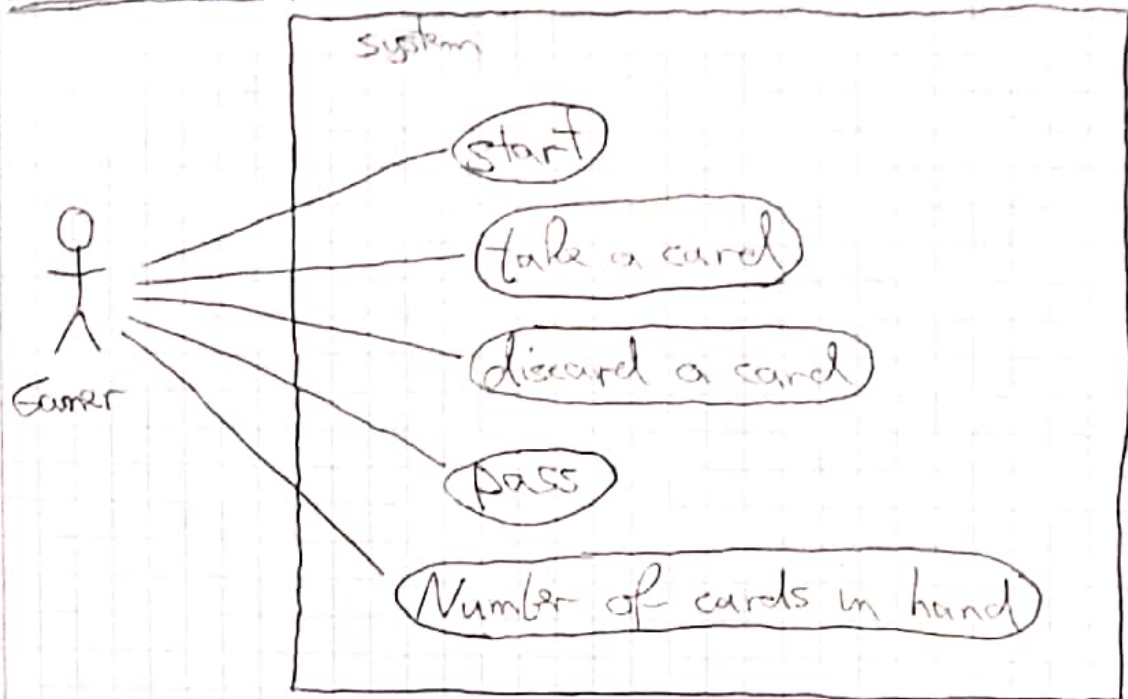 system
start
take a card
discard a card
pass
Gamer
Number of cards in hand